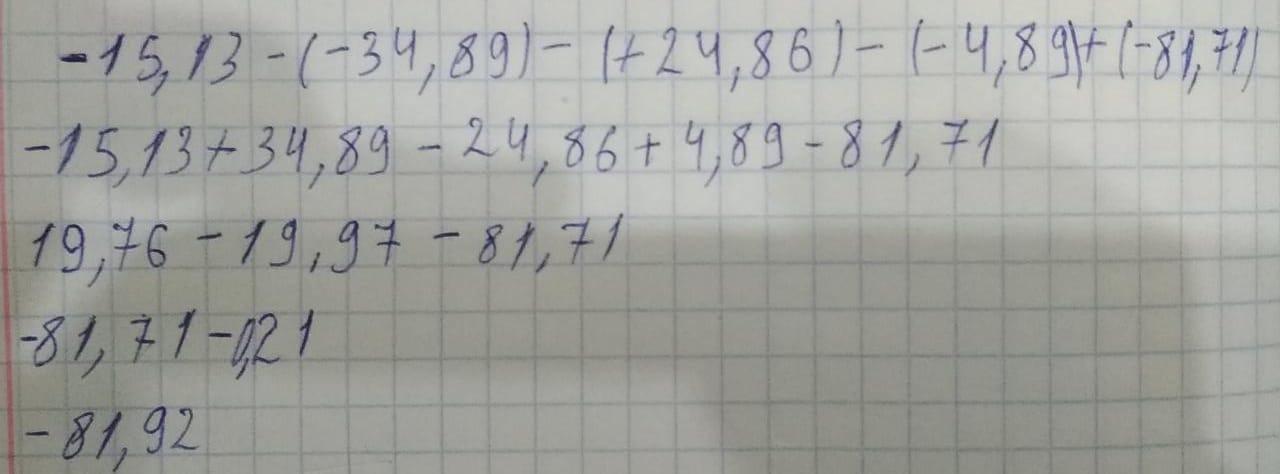 -15,13-(-34,89)-(+24,86)-(-4,89)+(-81,71)
-15,13+34,89-24,86+4,89-81,71
19,76-19,97-81,71
-81,71-0,21
-81,92